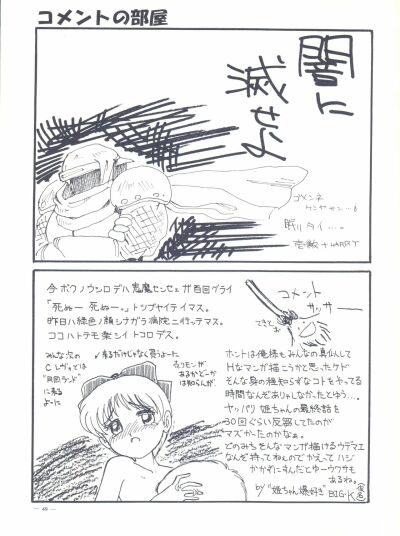 コメントの部屋
闇に
滅せよ
ゴメンネ
ケンヤサン…6
眠リタイ…。
壱撤+HARRY
今ボクノウシロデハ悪魔センセエガ百回グライ
「死ぬー死ぬー。」トツブヤイテイマス。
昨日ハ緑色ノ顔シナガラ病院ニ行ッテマス。
ココハトテモ楽シイトコロデス。
コメント
サッサー
できてよ
みんな次の
Cレヴォでは
"月回ランド"
に来る
ように
↓来るだけじゃなく買うよーに
売りモンが
あるかどーか
は知らんが。
ホントは俺様もみんなの真似して
Hなマンガ描こうかと思ったケド
そんな身の程知らずなコトをやってる
時間なんぞありゃしなかったとゆう…。
ヤッパリ姫ちゃんの最終話を
30回ぐらい反芻してたのが
マズかったのかなぁ。
どのみちそんなマンガ描けるウデマエ
なんぞ持ってねぇんでかえってハジ
かかずにすんだとゆーウワサも
あるね。
by "姫ちゃん爆好き" BIG-K
— 49 —